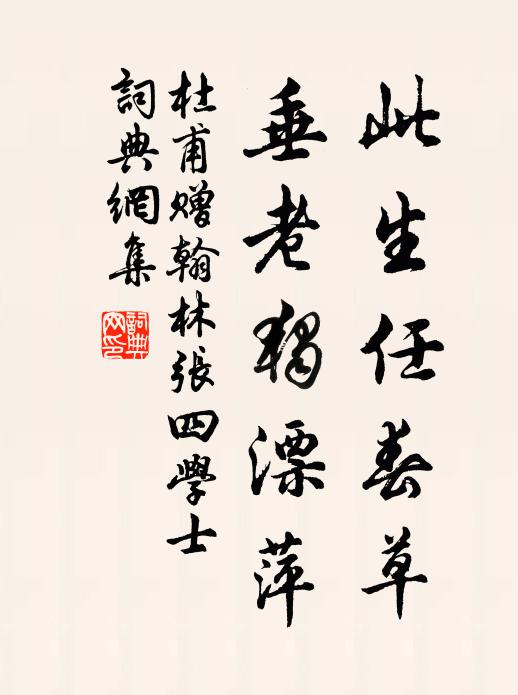 此生任春草
垂老獨漂萍
杜甫贈翰林張四學士
詞典網集
詞典網印